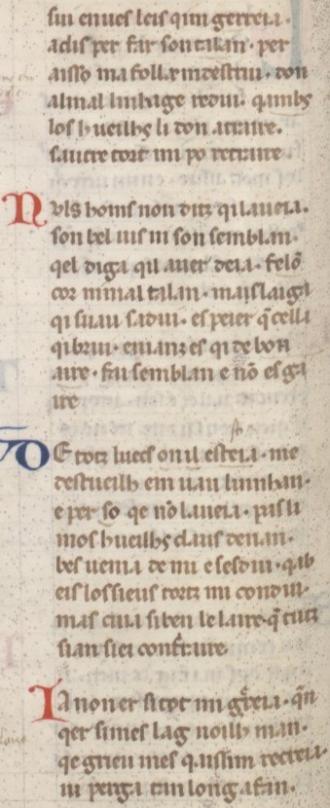 sui enues leis qim gerreia·
adis per far son talan· per
aisso ma follam destrui· don
al mal linhage redui· qambs
los hueilhs li don atraire·
sautre tort mi po retraire·
Nuls homs non ditz qi laueia·
son bel uis ni son semblan·
qel diga qil auer deia· felo
cor ni mal talan· mais laiga
qi suau sadui· es peier q̄ cella
qi brui· enianz es qi de bon
aire· fai semblan e nō es ga
ire
De totz luecs on il esteia· me
destueilh em uau lunhan·
e per so qe nola ueia· pas li
mos hueilhs claus denan·
bes ueia de mi e sesdui· qab
eis lossieus totz mi condui·
mas ciu siben le laire q̄ tuit
sian siei confraire
Ia non er si tot mi greia· qn
qer si mes lag noilh man·
qe grieu mes qaissim recreia·
ni perga tan long afan·